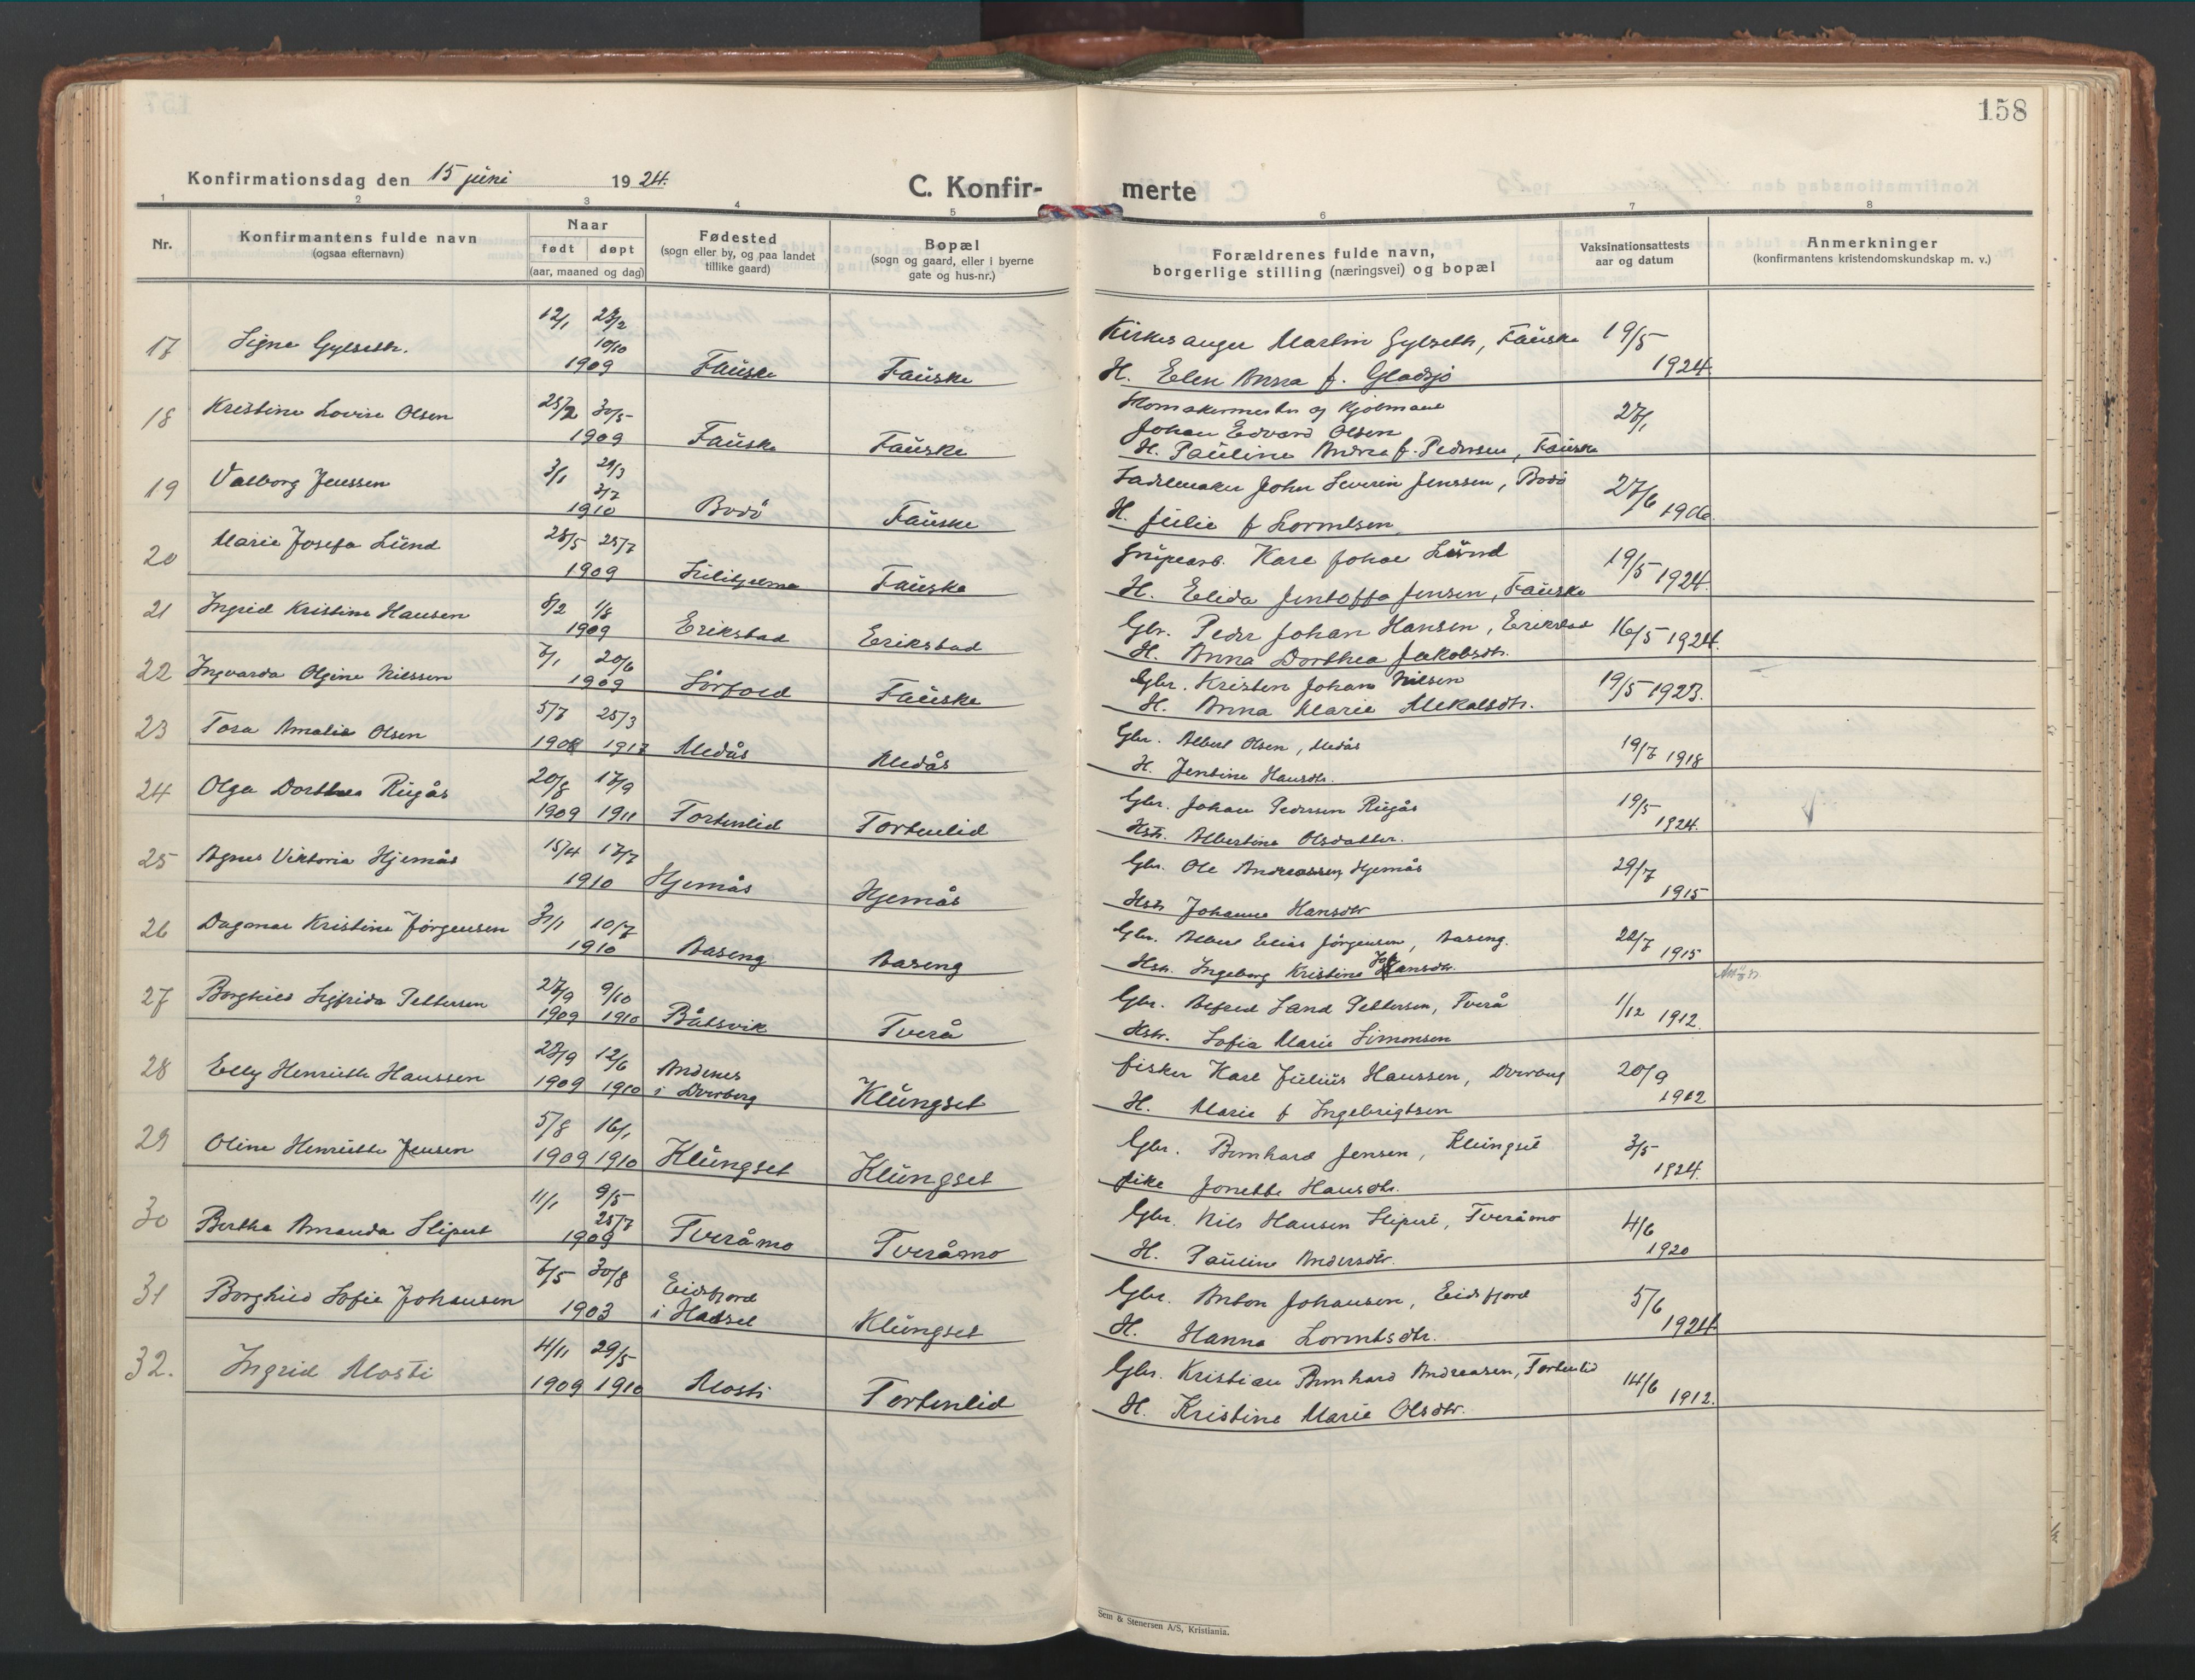 158
Konfirmationsdag den 15 juni 1924.
C. Konfir- merte
1 2 3 4 5 6 7 8
Nr.
Konfirmantens fulde navn
(ogsaa efternavn)
Naar
født døpt
(aar, maaned og dag)
Fødested
(sogn eller by, og paa landet
tillike gaard)
Bopæl
(sogn og gaard, eller i byerne
gate og hus-nr.)
Forældrenes fulde navn,
borgerlige stilling (næringsvei) og bopæl
Vaksinationsattests
aar og datum
Anmerkninger
(konfirmantens kristendomskundskap m. v.)
17 Signe Gylseth. 12/1 10/10 1909 Fauske Fauske Kirkesanger Martin Gylseth, Fauske 19/5
H. Elen Anna f. Gladsjø 1924.
18 Kristine Lovise Olsen 25/2 30/5 1909 Fauske Fauske 27/1
Johan Edvard Olsen
H. Pauline Andrea f. Pedersen, Fauske
19 Valborg Jenssen 3/1 29/3 3/7 1910 Bodø Fauske Sadelmaker John Severin Jenssen, Bodø 27/6 1906.
H. Julie f Lorentsen
20 Marie Josefa Lund 28/5 25/7 1909 Sulitjelma Fauske Grubearb. Karl Johan Lund 19/5 1924.
H. Elida Jentoffa Jensen, Fauske
21 Ingrid Kristine Hansen 8/2 1/8 1909 Erikstad Erikstad Gbr. Peder Johan Hansen, Erikstad 16/5 1924.
H. Anna Dorthea Jakobsdtr.
22 Ingvarda Olgine Nilssen 7/1 20/6 1909 Sørfold Fauske Gbr. Kristen Johan Nilsen 19/5 1923.
H. Anna Marie Mekalsdtr.
23 Tora Amalie Olsen 5/7 25/3 1908 1917 Medås Medås Gbr. Albert Olsen, Medås 19/7 1918
H. Jentine Hansdtr.
24 Olga Dorthea Rugås 20/8 17/9 1909 1911 Tortenlid Tortenlid Gbr. Johan Pedersen Rugås 19/5
Hstr. Albertine Olsdatter. 1924.
25 Agnes Viktoria Hjemås 15/4 17/7 1910 Hjemås Hjemås Gbr. Ole Andreassen, Hjemås 29/7
Hstr Johanne Hansdtr 1915
26 Dagmar Kristine Jørgensen 31/1 10/7 1910 Aaseng Aaseng Gbr. Albert Elias Jørgensen, Aaseng. 22/7 1915
Hstr. Ingeborg Kristine Hansdtr.
27 Borghild Sigfrida Pettersen 27/9 9/10 1909 1910 Båtsvik Tverå Gbr. Alfred Sand Pettersen, Tverå 1/12 1912.
Hstr. Sofia Marie Simonsen
28 Elly Henriette Hanssen 23/9 12/6 1909 1910 Andenes
i Dverberg Klungset fisker Karl Julius Hanssen, Dverberg 20/9
H. Marie f Ingebrigtsen 1912
29 Oline Henriette Jensen 5/8 16/1 1909 1910 Klungset Klungset Gbr. Bernhard Jensen, Klungset 3/5
pike Jonette Hansdtr. 1924.
30 Bertha Amanda Slipert 11/1 9/5 25/7 1909 Tveråmo Tveråmo Gbr. Nils Hansen Slipert, Tveråmo 4/6
H. Pauline Andersdtr. 1920
31 Borghild Sofie Johansen 7/5 30/8 1903 Eidsfjord
i Hadsel Klungset Gbr. Anton Johansen, Eidsfjord 5/6
H. Hanna Lorentsdtr. 1924
32. Ingrid Mosti 4/11 29/5 1909 1910 Mosti Tortenlid Gbr. Kristian Bernhard Andreasen, Tortenlid 14/6
H. Kristine Marie Olsdtr. 1912.
Sem & Stenersen A/S, Kristiania.